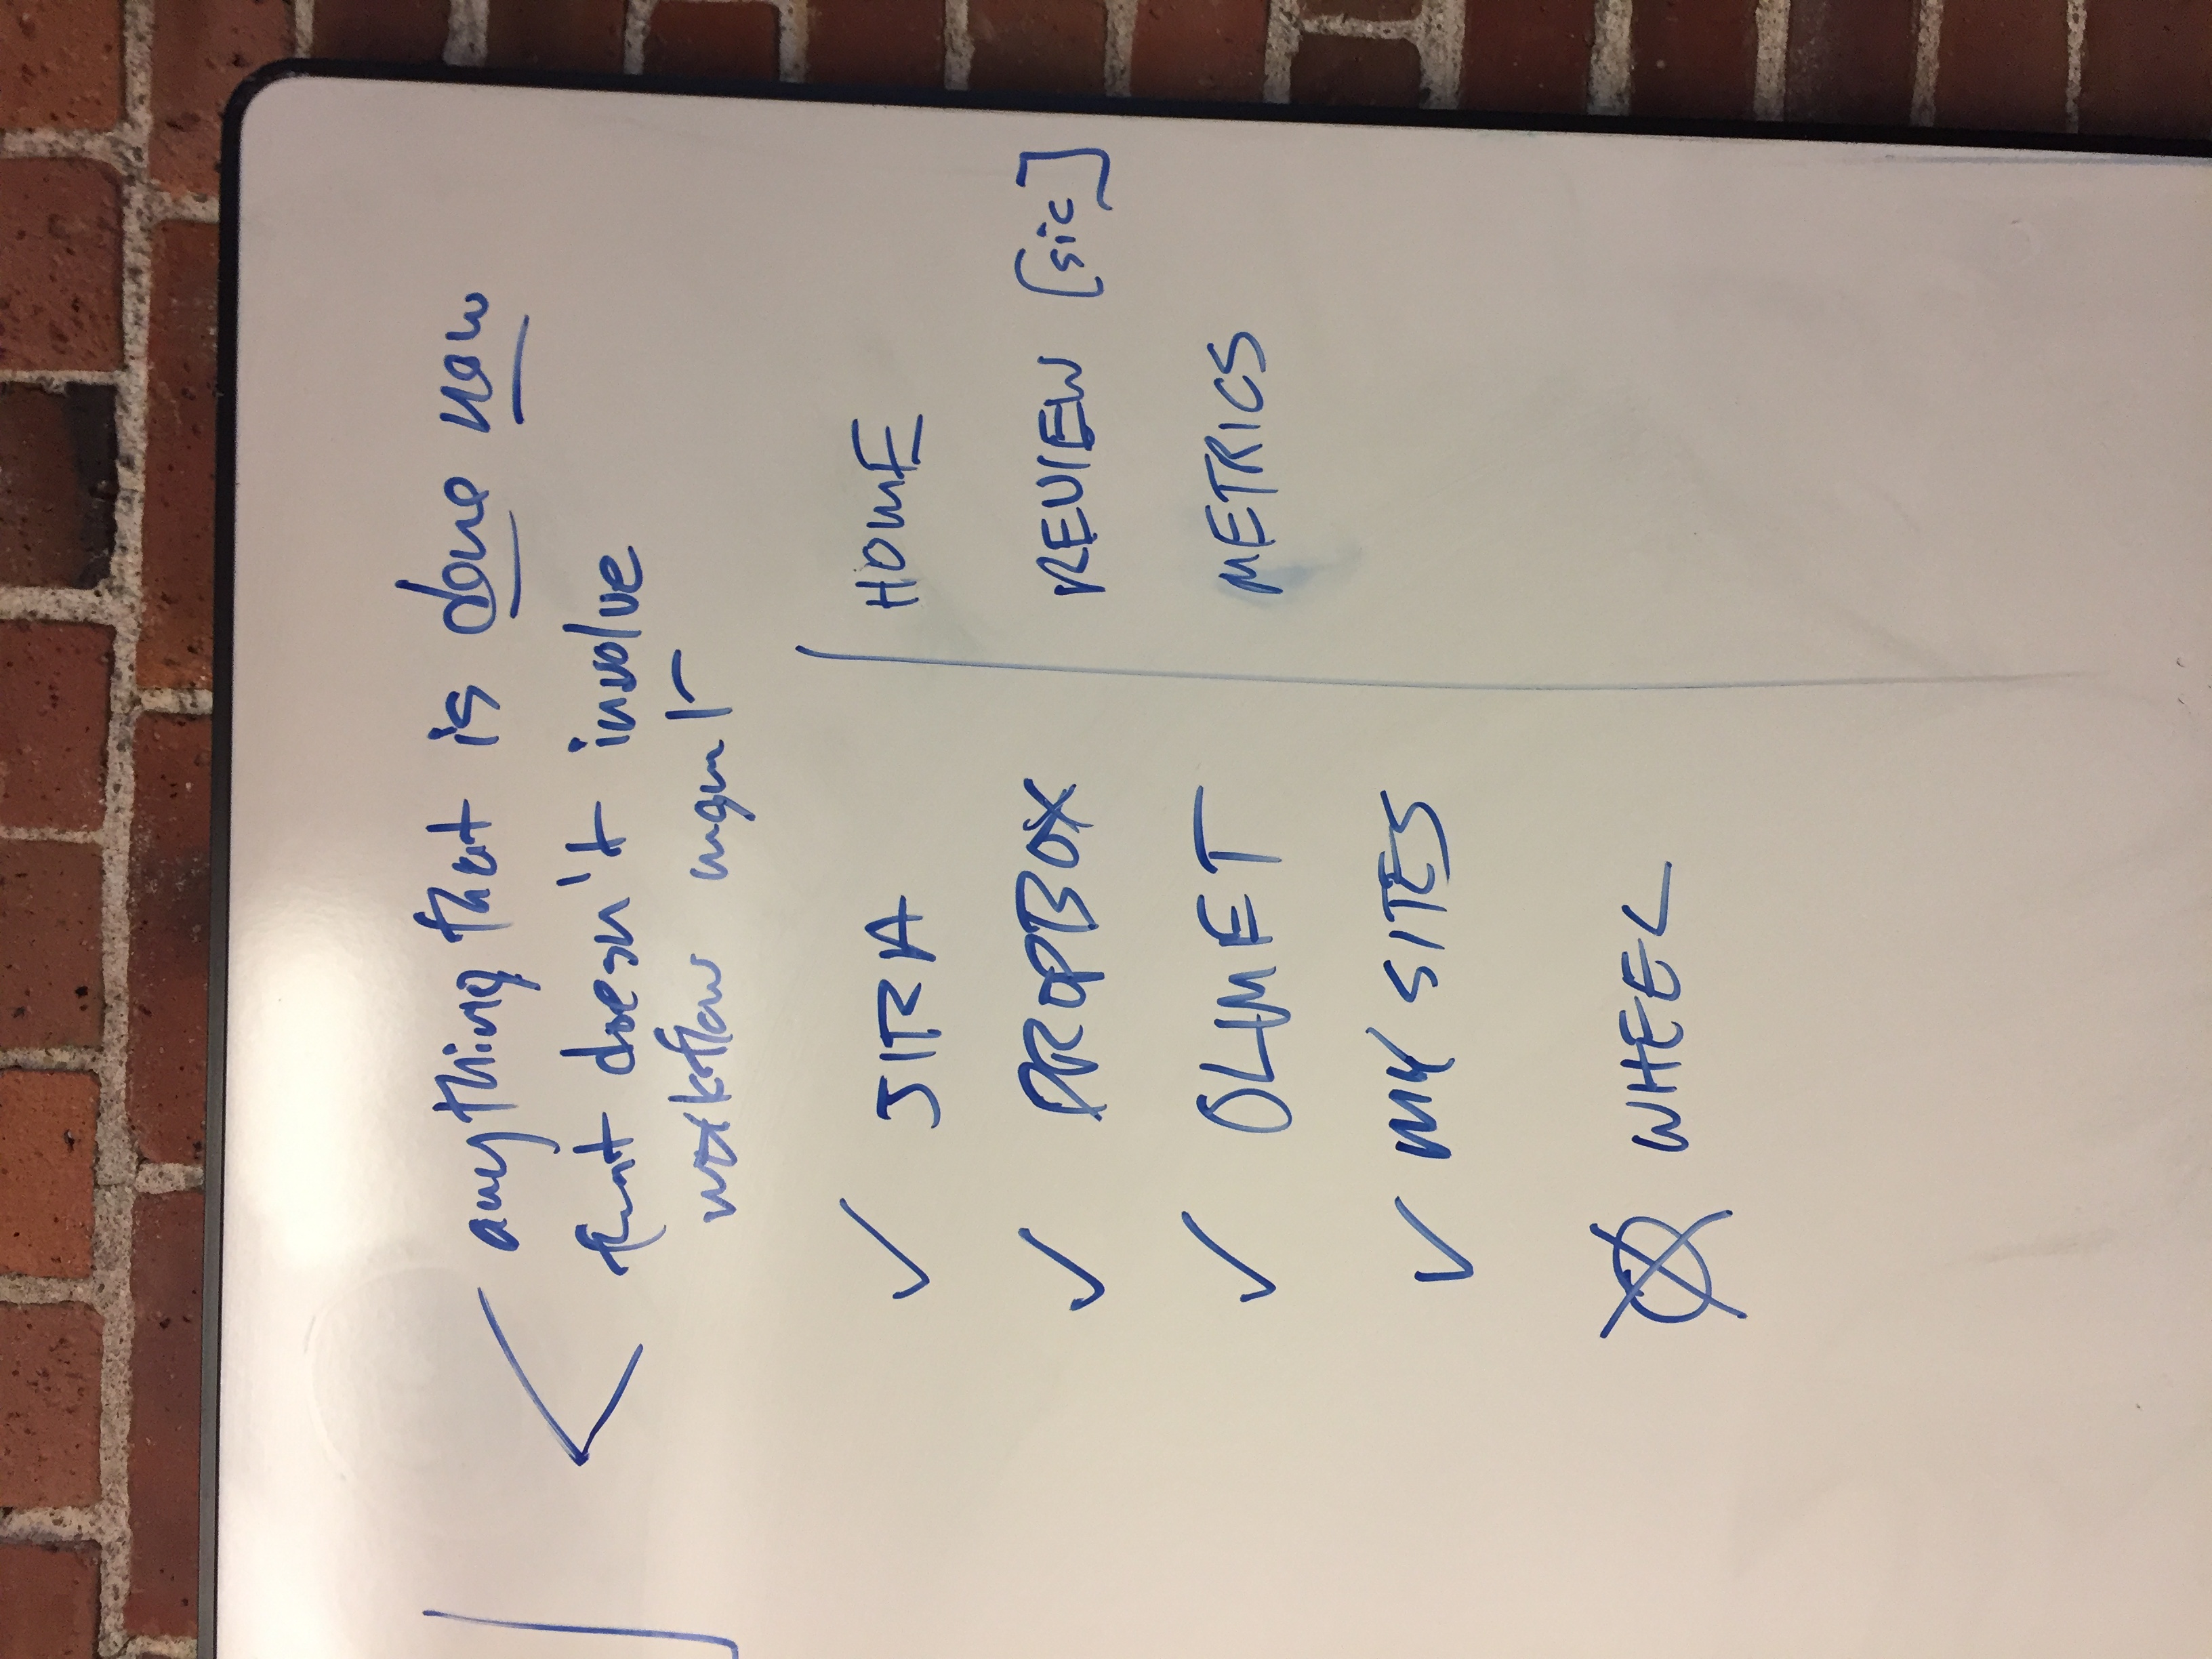 anything that is done now
that doesn't involve
workflow mgmt
✓ JIRA
✓ DROPBOX
✓ OLMET
✓ MY SITES
WHEEL
HOME
REVIEW [sic]
METRICS